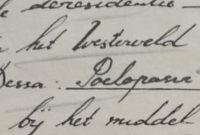 de deresidentie
het Westerveld
Dessa: Poelopasir
bij het middel